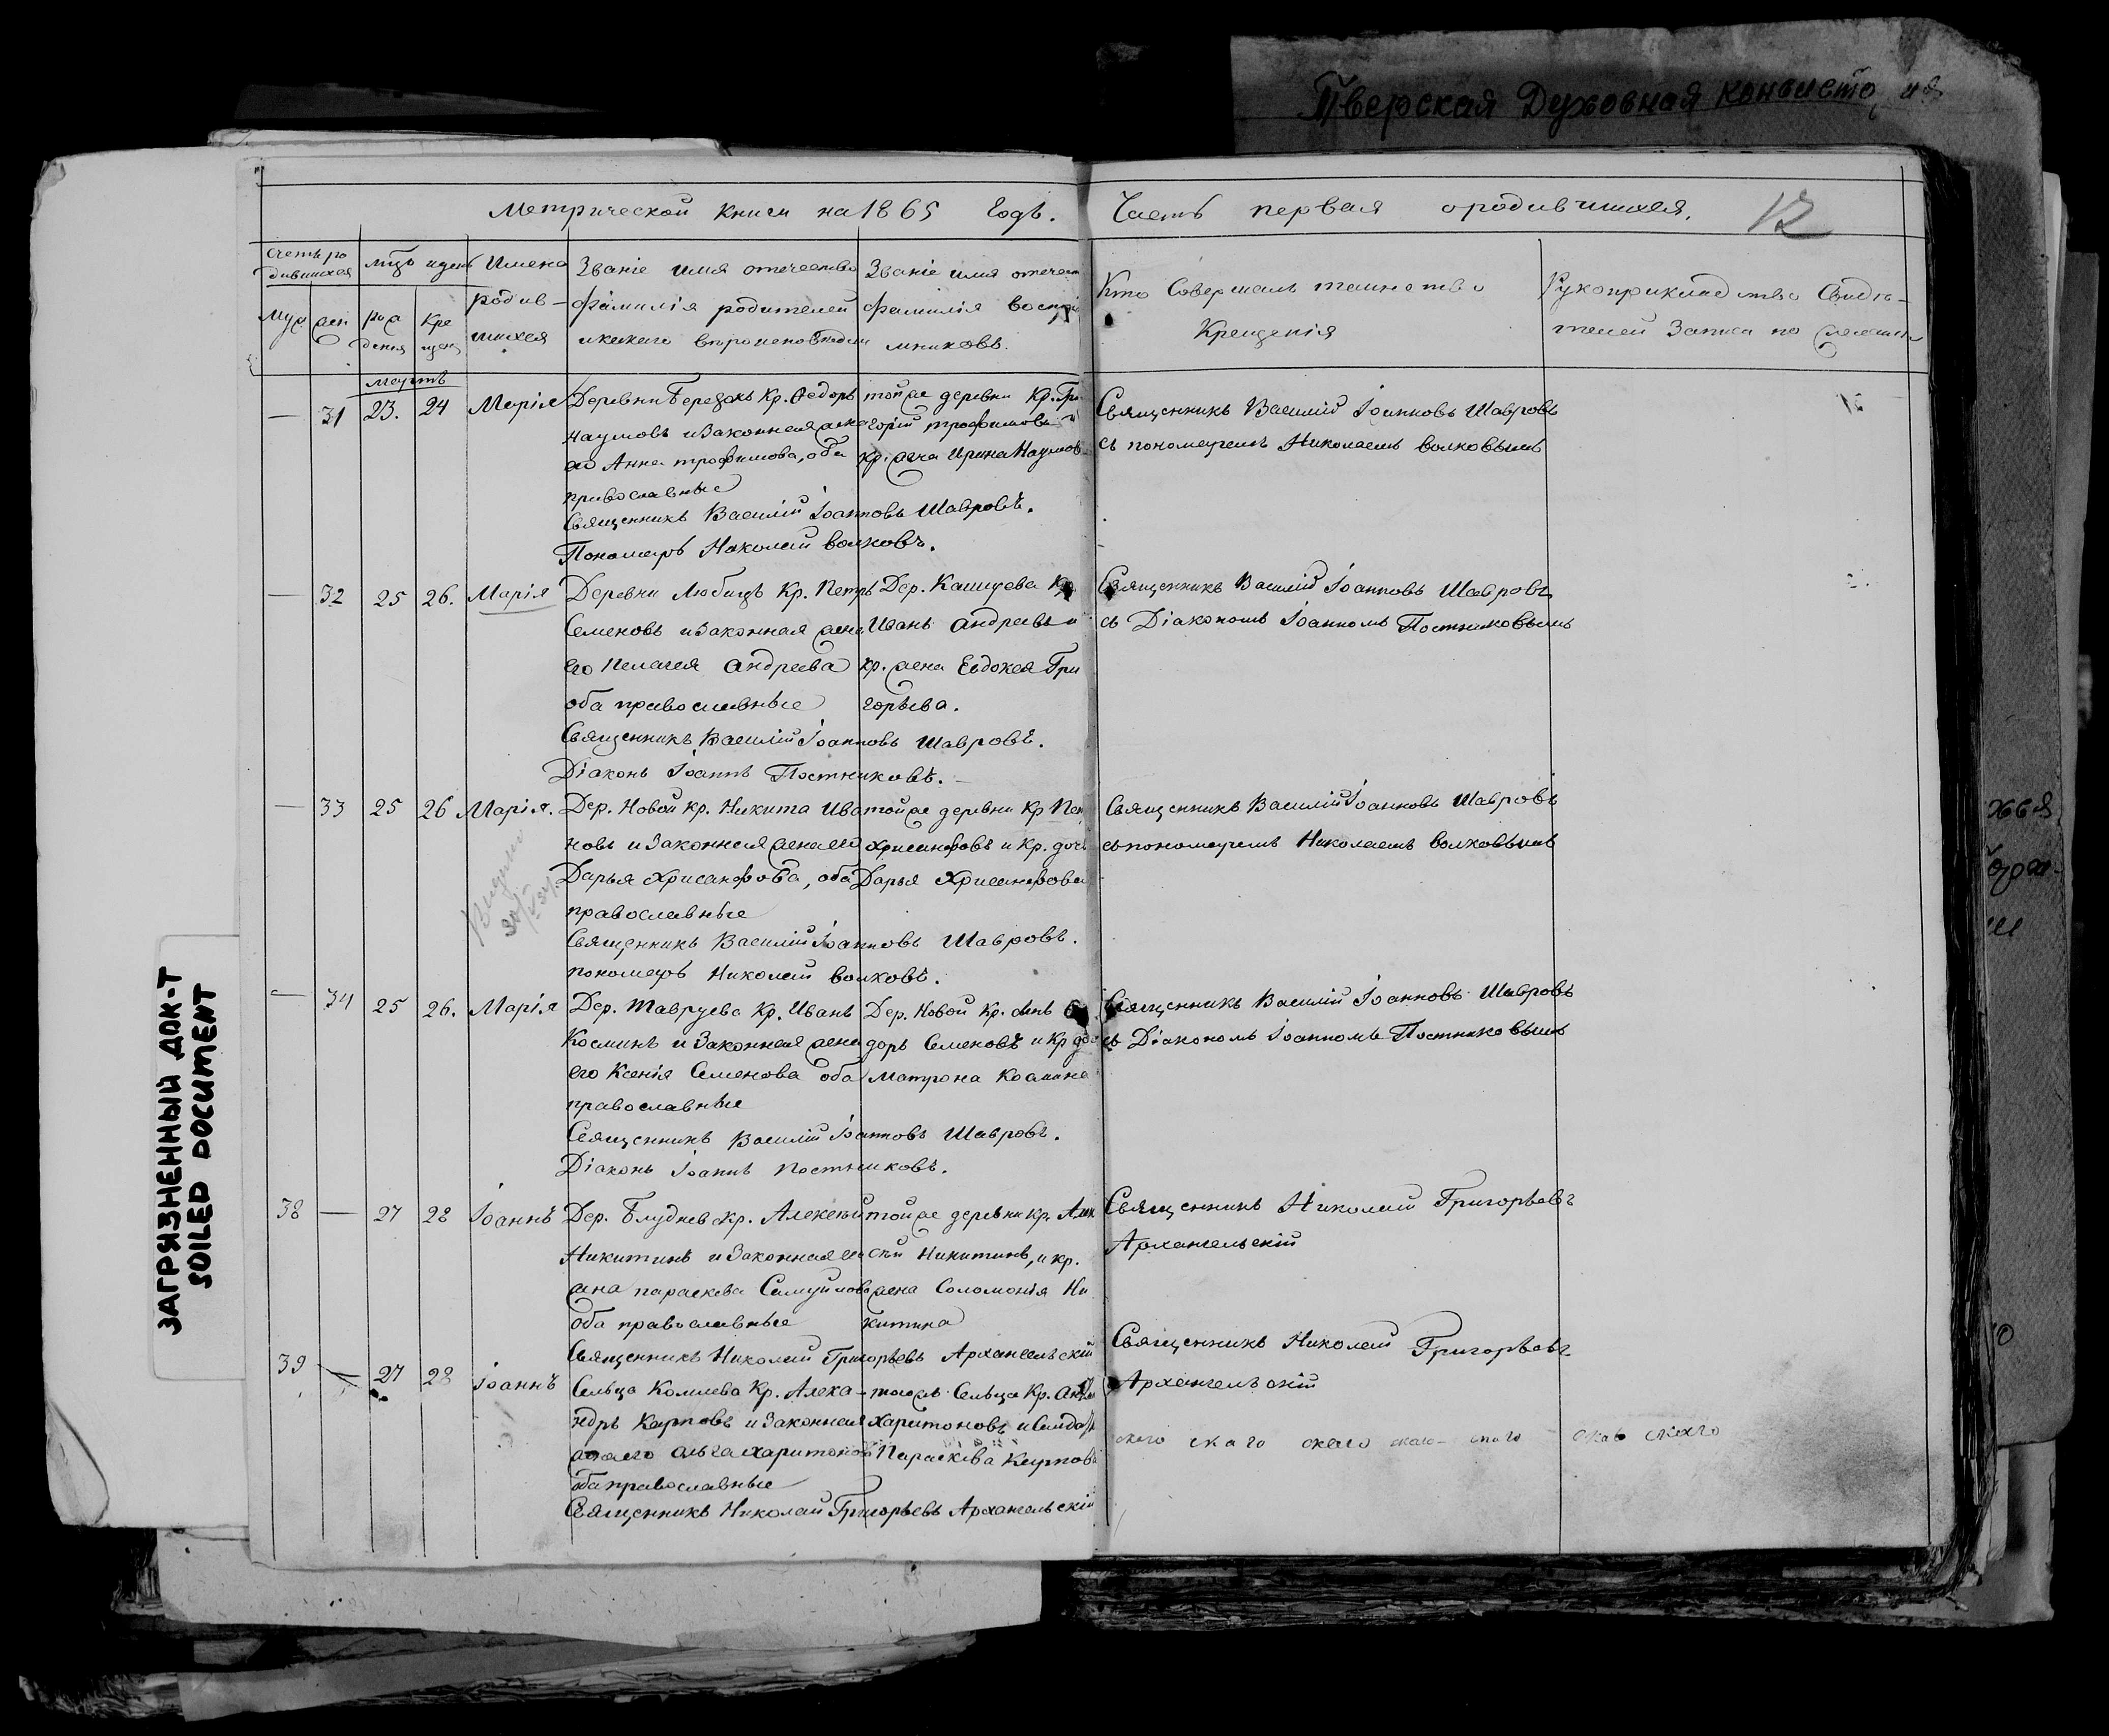 Тверская Духовная
Метрической книги на 1865 годъ.
Часть первая о родившихся.
12
Счетъ ро
дившихся
Муж
жен
рож
денія
Кре
щен
Имена
родив-
шихся
Званіе имя отечество
фамилія родителей
Званіе имя отечест
фамилія воспрі
мниковъ.
Кто совершалъ таинство
Крещенія
Рукоприкладство Свидѣ-
телей Записи по желанію
Мартъ
— 31 23. 24 Марія
Деревни Бережокъ Кр. Ѳедоръ
Наумовъ и законная жена
его Анна трофимова, оба
православные
тойже деревни Кр. Гри
горій трофимовъ и
кр. жена Ирина Наумов
Священникъ Василій Іоанновъ Шавровъ
съ пономаремъ Николаемъ волковымъ
Священникъ Василій Іоанновъ Шавровъ.
Пономарь Николай волковъ.
— 32 25 26. Марія
Деревни Любицъ Кр. Петръ
Семеновъ и законная жена
его Пелагея андреева
оба православные
Дер. Кашуева Кр
Иванъ андреевъ и
кр. жена Евдокея Гри
горьева.
Священникъ Василій Іоанновъ Шавровъ
съ Діакономъ Іоанномъ Постниковымъ
Священникъ Василій Іоанновъ Шавровъ.
Діаконъ Іоаннъ Постниковъ.
— 33 25 26 Марія.
Дер. Новой Кр. Никита Ива
новъ и законная жена его
Дарья Хрисанфова, оба
православные
тойже деревни Кр Пет
Хрисанфовъ и Кр. дочь
Дарья Хрисанфова
Священникъ Василій Іоанновъ Шавровъ
съ пономаремъ Николаемъ волковымъ
Священникъ Василій Іоанновъ Шавровъ.
пономарь Николай волковъ.
— 34 25 26. Марія
Дер. Тавруева Кр. Иванъ
Косминъ и законная жена
его Ксенія Семенова оба
православные
Дер. Новой Кр. сынъ
доръ Семеновъ и Кр
Матрона Космина
Священникъ Василій Іоанновъ Шавровъ
съ Діакономъ Іоанномъ Постниковымъ
Священникъ Василій Іоанновъ Шавровъ.
Діаконъ Іоаннъ Постниковъ.
38 — 27 28 Іоаннъ
Дер. Блуднев Кр. Алексѣй
Никитинъ и законная его
жена параскева Самуйлова
оба православные
тойже деревни кр. Алек
сѣй Никитинъ, и кр.
жена Соломонія Ни
китина
Священникъ Николай Григорьевъ
Архангельскій
Священникъ Николай Григорьевъ Архангельскій
39 — 27 28 Іоаннъ
Сельца Комлева Кр. Алекса-
ндръ Карповъ и законная
жена его ольга харитонов
оба православные
тогожъ Сельца Кр.
Харитоновъ и
Параскева Карпова
Священникъ Николай Григорьевъ
Архангельскій
Священникъ Николай Григорьевъ Архангельскій
скаго скаго скаго скаго скаго скаго скаго
ЗАГРЯЗНЕННЫЙ ДОК-Т
SOILED DOCUMENT